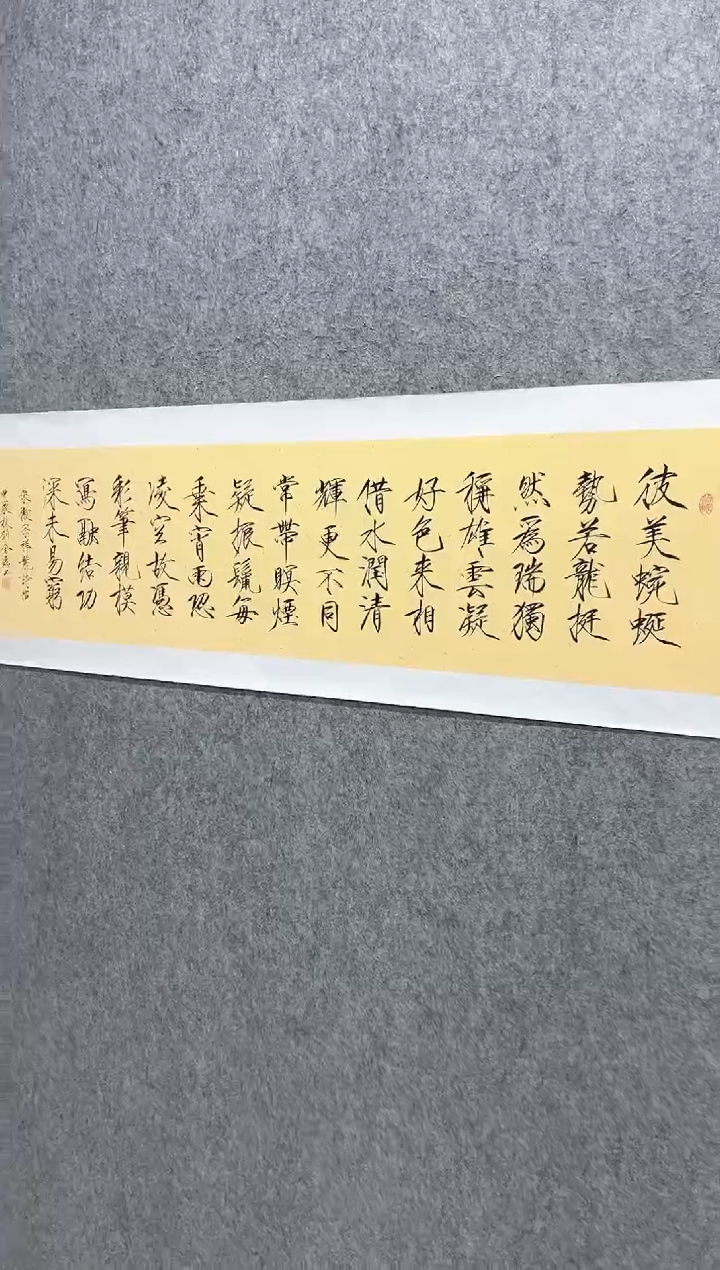 彼美蜿蜒
勢若龍挺
然為瑞獨
稱雄雲凝
好色来相
借水潤清
輝更不同
常帶暝煙
疑振鬣每
乘宵雨恐
凌空故憑
彩筆親模
寫融結功
深未易窮